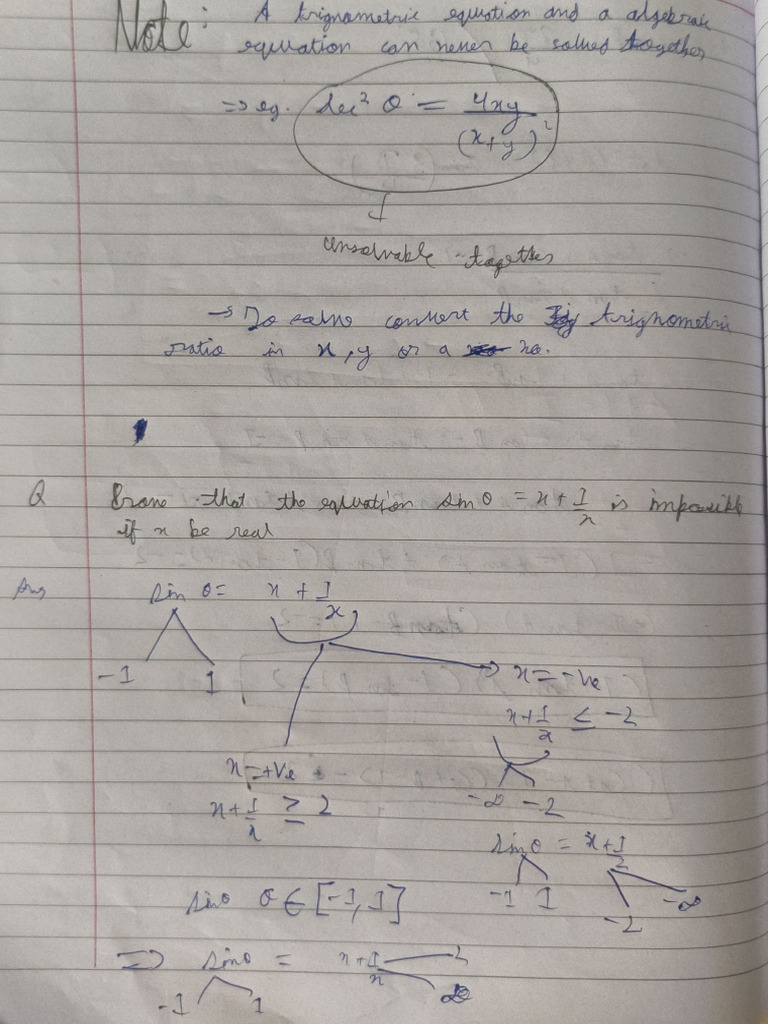 Note: A trignometric equation and a algebraic
equation can never be solved together
=> eg. sec² θ = 4xy / (x+y)²
unsolvable together
→ To solve convert the trignometric
ratio in x, y or a no.
Q Prove that the equation sin θ = x + 1/x is impossible
if x be real
Ans sin θ = x + 1/x
-1 1
x = -ve
x + 1/x ≤ -2
x = +ve
-∞ -2
x + 1/x ≥ 2
sin θ = x + 1/x
-1 1 -2 -∞
sin θ θ ∈ [-1, 1]
=> sin θ = x + 1/x 2
-1 1 ∞